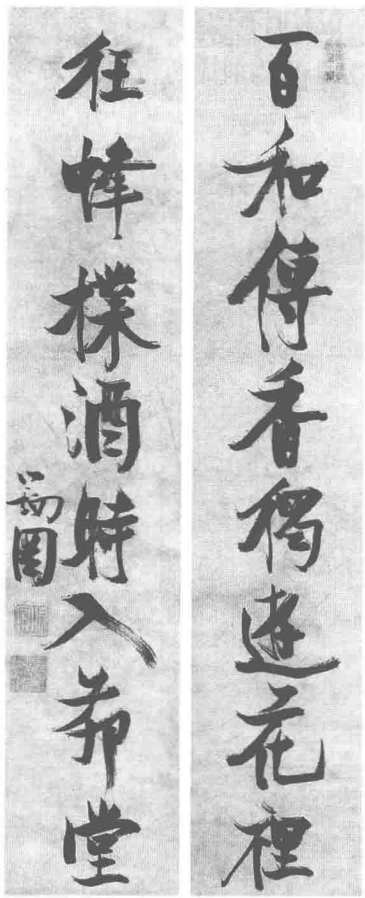 百和傳香獨遶花裡
狂蜂撲酒時入茆堂